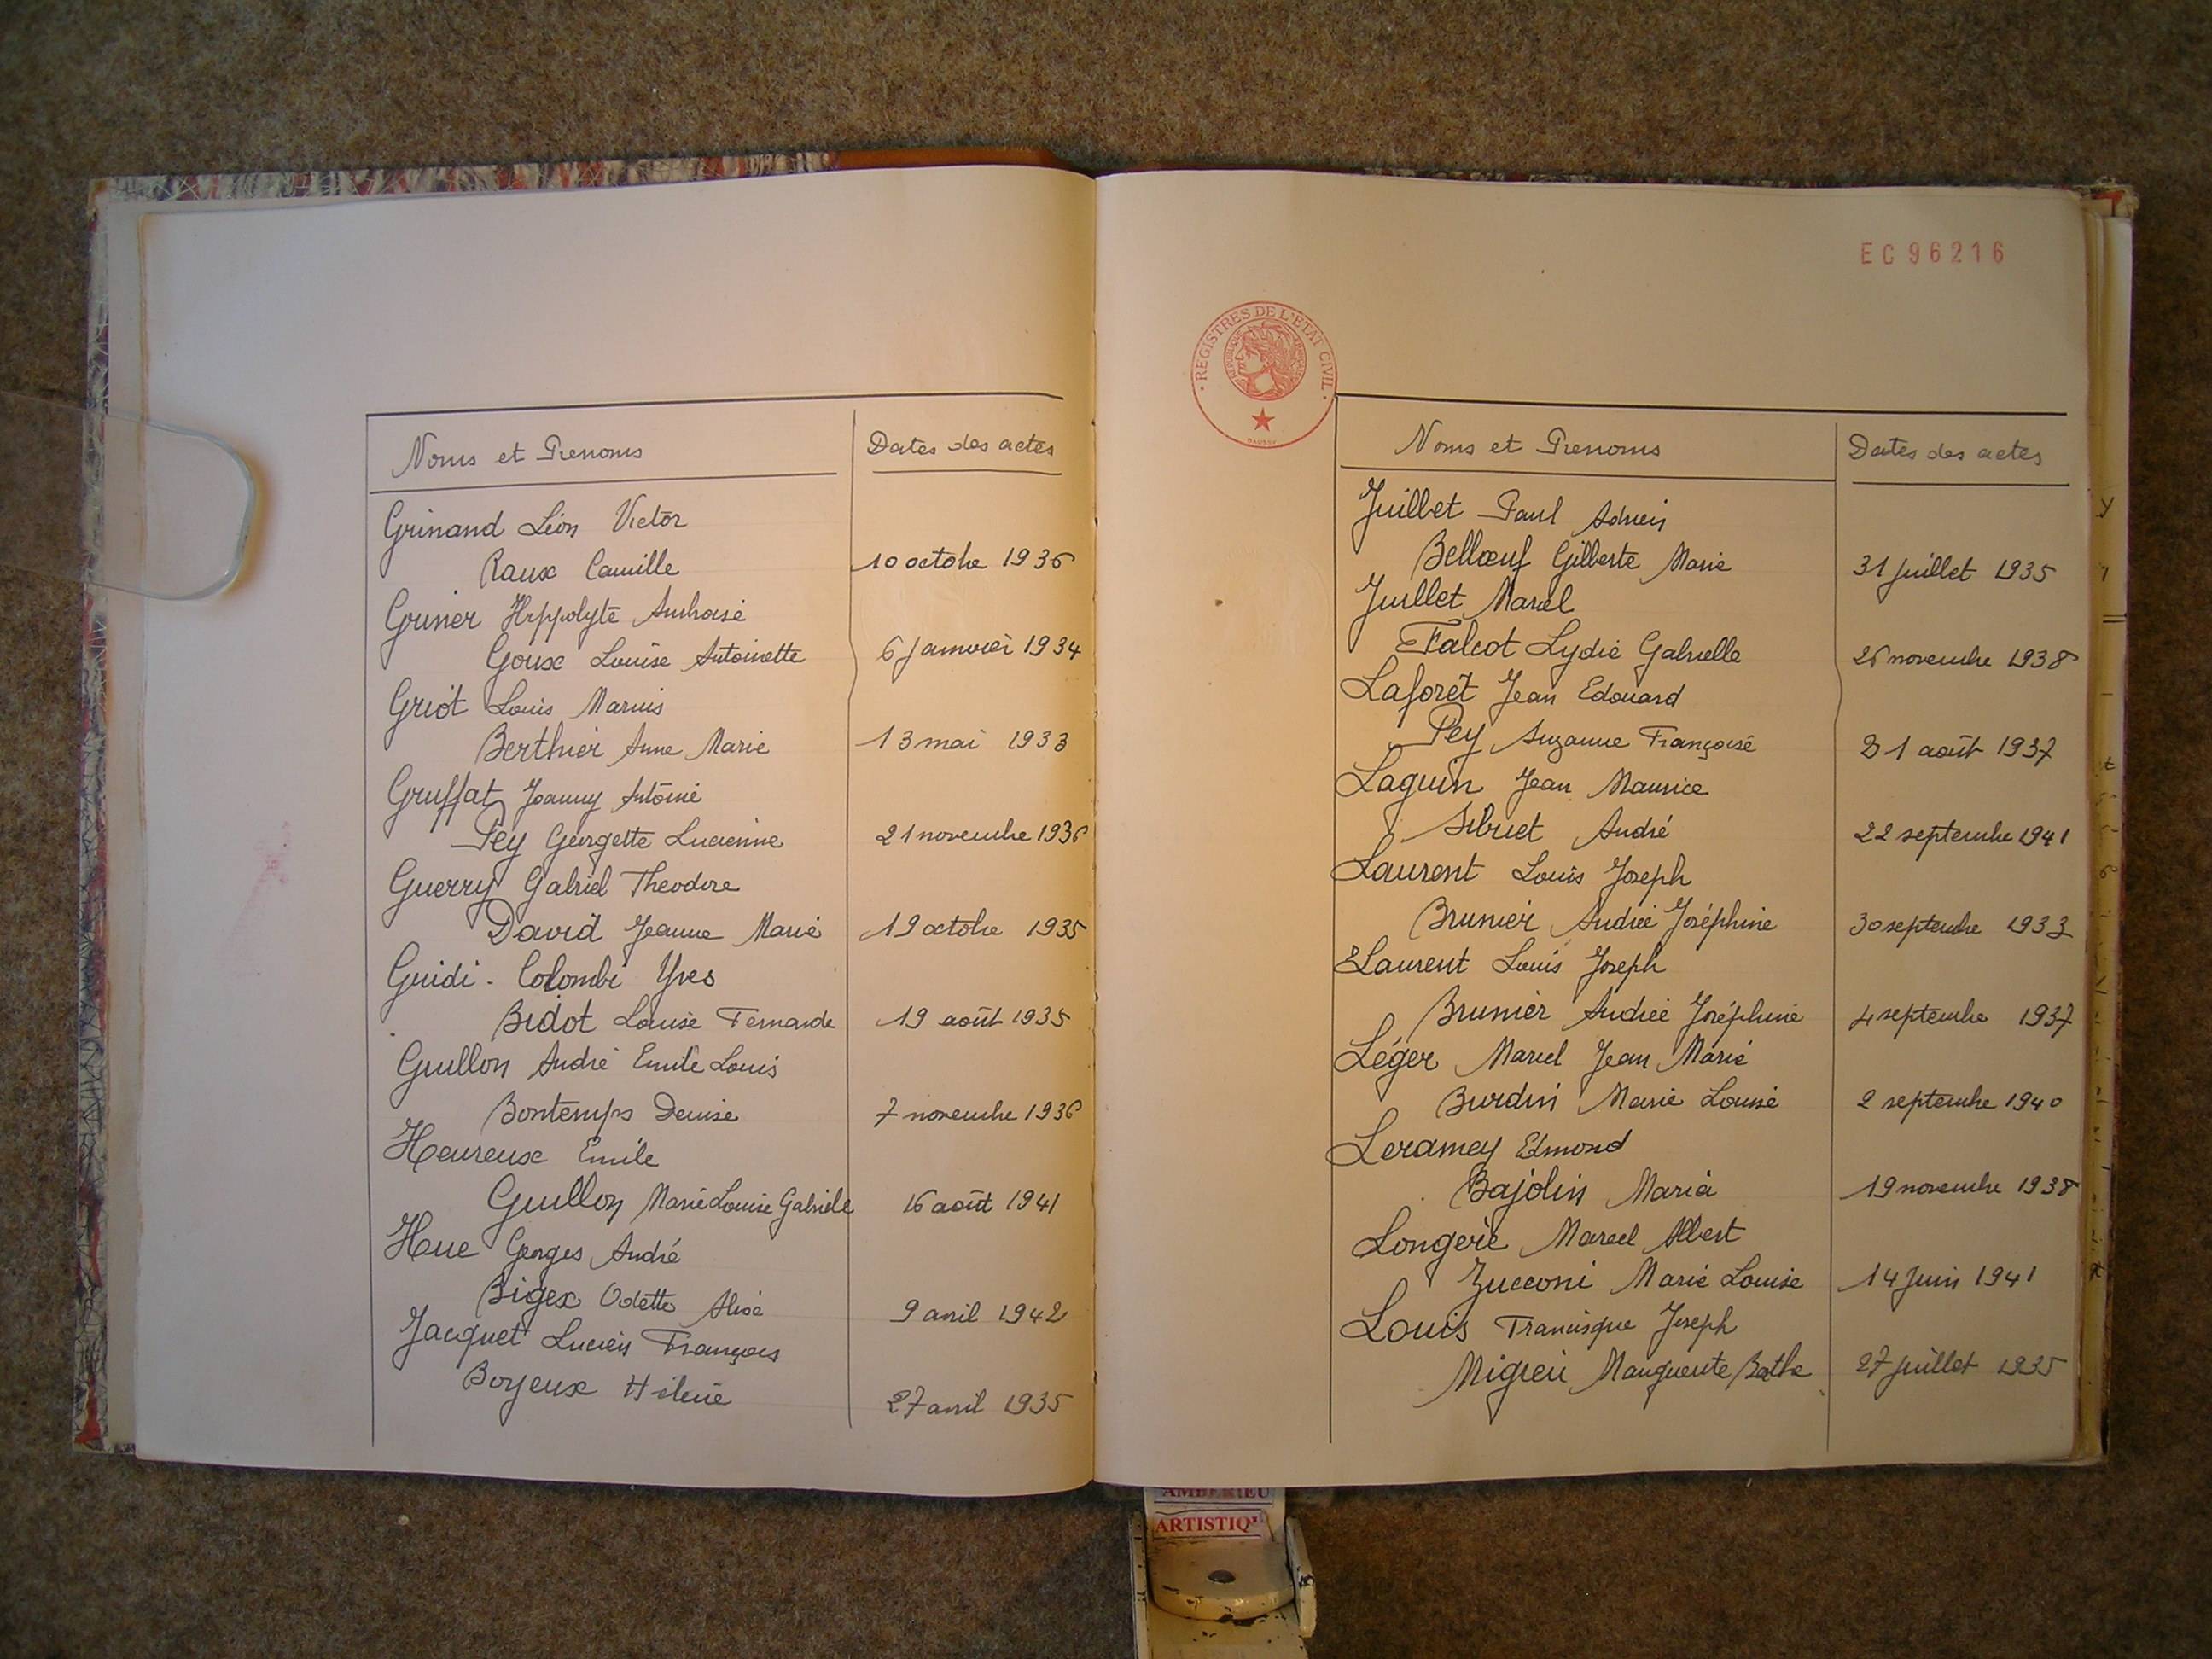 Noms et Prenoms Dates des actes
Grinand Léon Victor
Raux Camille 10 octobre 1936
Griner Hippolyte Ambroise
Goux Louise Antoinette 6 Janvier 1934
Griot Louis Marius
Berthier Anne Marie 13 mai 1933
Gruffat Joanny Antoine
Pey Georgette Lucienne 21 novembre 1936
Guerry Gabriel Theodore
David Jeanne Marie 19 octobre 1935
Guidi - Colombi Yves
Bidot Louise Fernande 19 août 1935
Guillon André Emile Louis
Bontemps Denise 7 novembre 1936
Heureux Emile
Guillon Marie Louise Gabrielle 16 août 1941
Hue Georges André
Bigex Odette Alise 9 avril 1942
Jacquet Lucien François
Boyeux Hélène 27 avril 1935
EC 96216
· REGISTRES DE L'ETAT CIVIL ·
Noms et Prenoms Dates des actes
Juillet Paul Adrien
Bellœuf Gilberte Marie 31 Juillet 1935
Juillet Marcel
Falcot Lydie Gabrielle 26 novembre 1938
Laforêt Jean Edouard
Pey Suzanne Françoise 31 août 1937
Laguin Jean Maurice
Sibuet André 22 septembre 1941
Laurent Louis Joseph
Brunier Andrée Joséphine 30 septembre 1933
Laurent Louis Joseph
Brunier Andrée Joséphine 4 septembre 1937
Léger Marcel Jean Marie
Burdin Marie Louise 2 septembre 1940
Leramey Edmond
Bajolin Maria 19 novembre 1938
Longere Marcel Albert
Zucconi Marie Louise 14 Juin 1941
Louis Francisque Joseph
Marguerite Berthe 27 Juillet 1935
AMBERIEU
ARTISTIQ